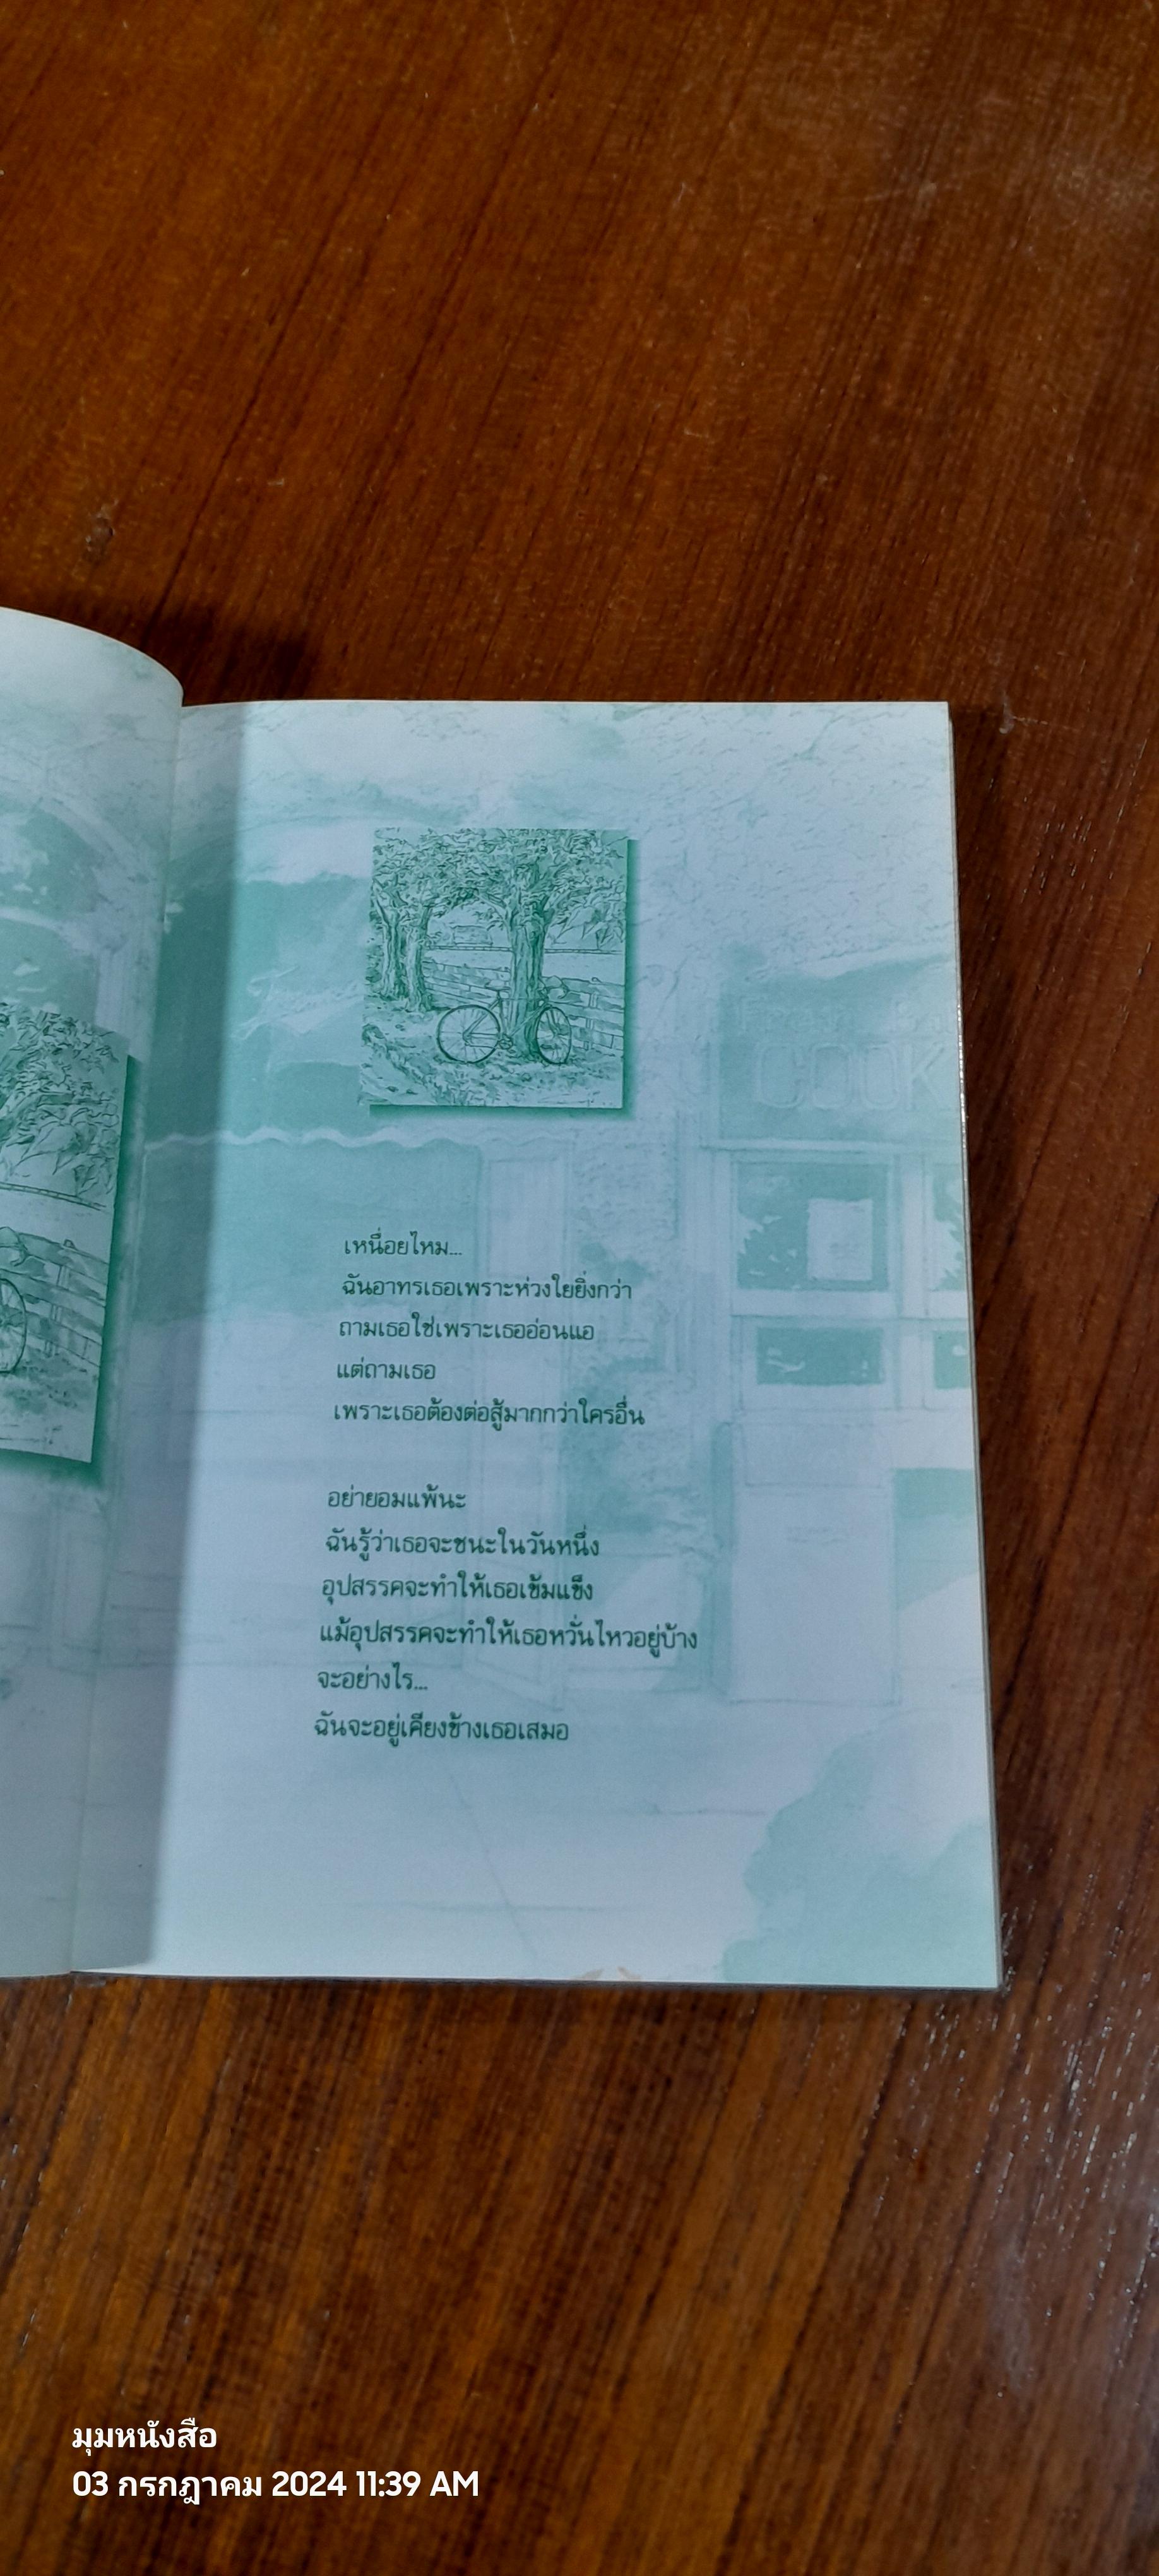 COOK
เหนื่อยไหม...
ฉันอาทรเธอเพราะห่วงใยยิ่งกว่า
ถามเธอใช่เพราะเธออ่อนแอ
แต่ถามเธอ
เพราะเธอต้องต่อสู้มากกว่าใครอื่น
อย่ายอมแพ้นะ
ฉันรู้ว่าเธอจะชนะในวันหนึ่ง
อุปสรรคจะทำให้เธอเข้มแข็ง
แม้อุปสรรคจะทำให้เธอหวั่นไหวอยู่บ้าง
จะอย่างไร...
ฉันจะอยู่เคียงข้างเธอเสมอ
มุมหนังสือ
03 กรกฎาคม 2024 11:39 AM